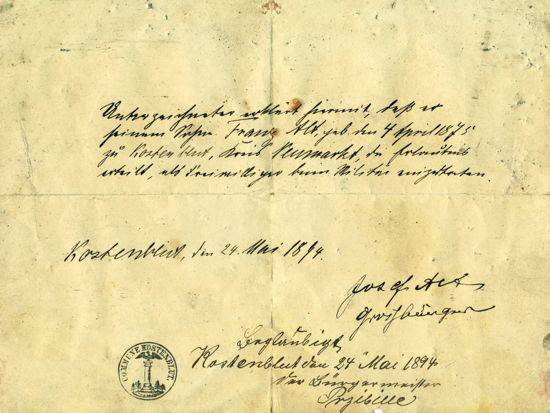 Unterzeichneter erklärt hiermit, daß er
seinem Sohn Franz Alt, geb den 4 April 1875
zu Kostenblut, Kreis Neumarkt, die Erlaubniß
erteilt, als Freiwilliger beim Militär einzutreten.
Kostenblut, den 24. Mai 1894.
Josef Alt
Großbürger
Beglaubigt
Kostenblut den 24 Mai 1894
der Bürgermeister
Przibille
COMMUNE KOSTENBLUT.